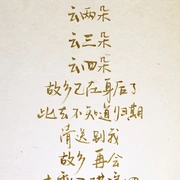 云两朵
云三朵
云四朵
故乡已在身后了
此去不知道归期
请送别我
故乡再会